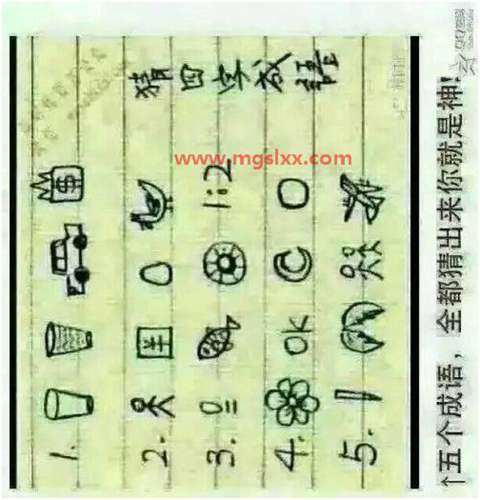 猜四字成語
www.mgslxx.com
1. $
2.
3. 1:2
4. OK
5.
↑五个成语，全都猜出来你就是神!